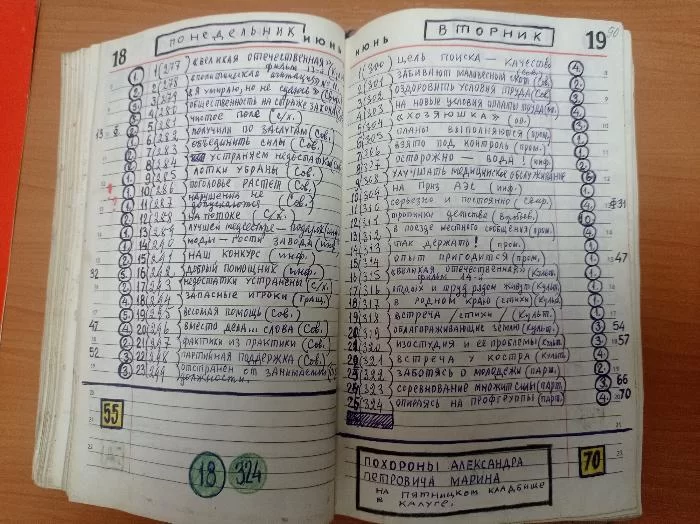 18 ПОНЕДЕЛЬНИК ИЮНЬ
1 (277) «ВЕЛИКАЯ ОТЕЧЕСТВЕННАЯ»
фильм 13-й
2 (278)
3 (279) «Я УМИРАЮ, НО НЕ СДАЮСЬ»
4 (280) ОБЩЕСТВЕННОСТЬ НА СТРАЖЕ ЗАКОНА
5 (281) ЧИСТОЕ ПОЛЕ (С/Х.)
6 (282) ПОЛУЧИЛИ ПО ЗАСЛУГАМ (СОВ.)
7 (283) ОБЪЕДИНИТЬ СИЛЫ (СОВ.)
8 (284) УСТРАНЯЕМ НЕДОСТАТКИ
9 (285) ЛОТКИ УБРАНЫ (СОВ.)
10 (286) ПОГОЛОВЬЕ РАСТЕТ (СОВ.)
11 (287) НАРУШЕНИЯ НЕ ДОПУСКАЮТСЯ (СОВ.)
12 (288) НА ПОТОКЕ (С/Х.)
13 (289) ЛУЧШЕЙ МЕДСЕСТРЕ - ПОДАРОК
14 (290) МОДЫ - ГОСТИ ЗАВОДА (ИНФ.)
15 (291) НАШ КОНКУРС (ИНФ.)
16 (292) ДОБРЫЙ ПОМОЩНИК (ИНФ.)
17 (293) НЕДОСТАТКИ УСТРАНЕНЫ (СОВ.)
18 (294) ЗАПАСНЫЕ ИГРОКИ
19 (295) ВЕСОМАЯ ПОМОЩЬ (СОВ.)
20 (296) ВМЕСТО ДЕЛА... СЛОВА (СОВ.)
21 (297) ФАКТИКИ ИЗ ПРАКТИКИ (СОВ.)
22 (298) ПАРТИЙНАЯ ПОДДЕРЖКА (СОВ.)
23 (299) ОТСТРАНЕН ОТ ЗАНИМАЕМОЙ
ДОЛЖНОСТИ.
55
18 324
ИЮНЬ ВТОРНИК 19
1 (300) ЦЕЛЬ ПОИСКА - КАЧЕСТВО
2 (301) ЗАБИВАЮТ МАЛОВЕСНЫЙ СКОТ (СОВ.)
3 (302) ОЗДОРОВИТЬ УСЛОВИЯ ТРУДА (СОВ.
4 (303) НА НОВЫЕ УСЛОВИЯ ОПЛАТЫ ТРУДА
5 (304) «ХОЗЯЮШКА»
6 (305) ПЛАНЫ ВЫПОЛНЯЮТСЯ (ПРОМ.)
7 (306) ВЗЯТО ПОД КОНТРОЛЬ (ПРОМ.)
8 (307) ОСТОРОЖНО - ВОДА! (ИНФ.)
9 (308) УЛУЧШАТЬ МЕДИЦИНСКОЕ ОБСЛУЖИВАНИЕ
10 (309) НА ПРИЗ АЭС (ИНФ.)
11 (310) СЕРЬЕЗНО И ПОСТОЯННО
12 (311) ТРОПИНКИ ДЕТСТВА
13 (312) В ПОЕЗДЕ МЕСТНОГО СООБЩЕНИЯ (ПРОМ.)
14 (313) ТАК ДЕРЖАТЬ! (ПРОМ.)
15 (314) ОПЫТ ПРИГОДИТСЯ (ПРОМ.) 47
(315) «ВЕЛИКАЯ ОТЕЧЕСТВЕННАЯ» (КУЛЬТ.
фильм 14-й
17 (316) ОТДЫХ И ТРУД РЯДОМ ЖИВУТ (КУЛЬТ.
18 (317) В РОДНОМ КРАЮ (СТИХИ) (КУЛЬТ.
19 (318) ВСТРЕЧА /СТИХИ/ (КУЛЬТ.)
20 (319) ОБЛАГОРАЖИВАЮЩИЕ ЗЕМЛЮ (КУЛЬТ. 54
21 (320) ИЗОСТУДИЯ И ЕЕ ПРОБЛЕМЫ (КУЛЬТ. 57
(321) ВСТРЕЧА У КОСТРА (КУЛЬТ.
(322) ЗАБОТЯСЬ О МОЛОДЕЖИ (ПАРТ.
(323) СОРЕВНОВАНИЕ МНОЖИТ СИЛЫ (ПАРТ. 66
25 (324) ОПИРАЯСЬ НА ПРОФГРУППЫ (ПАРТ. 70
ПОХОРОНЫ АЛЕКСАНДРА
ПЕТРОВИЧА МАРИНА
НА ПЯТНИЦКОМ КЛАДБИЩЕ
В КАЛУГЕ.
70